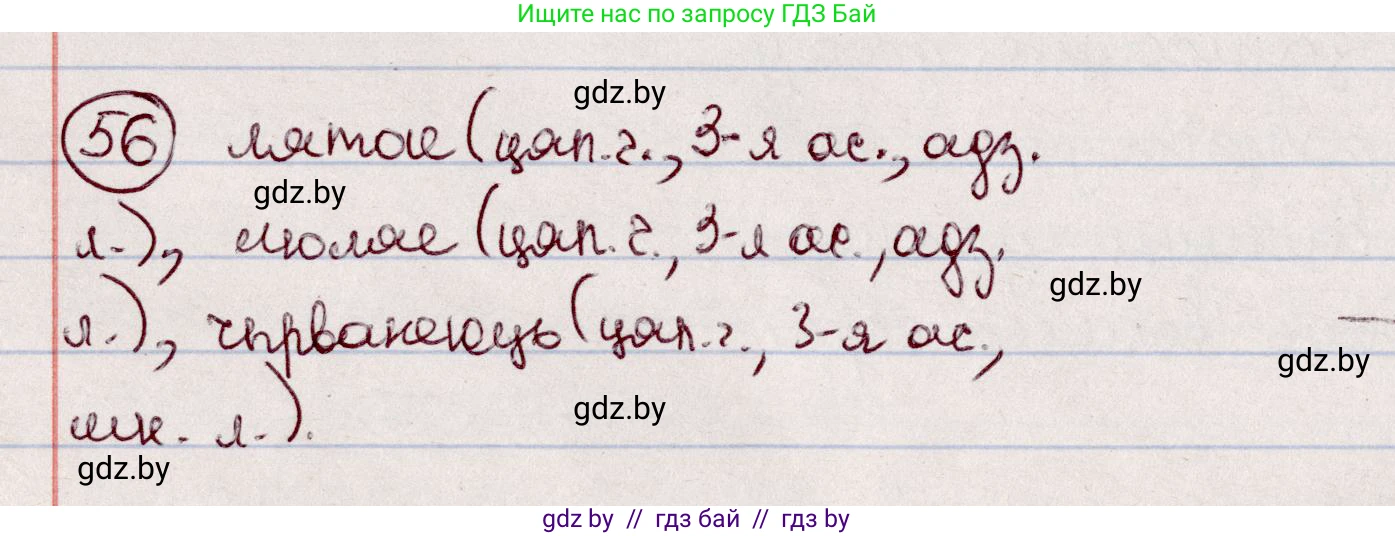 Ищите нас по запросу ГДЗ Бай
gdz.by
56 мятое (цяп. г., 3-я ас., адз.
gdz.by
л.), (цяп. г., 3-я ас., адз.
gdz.by
л.), чырванеюць (цяп. г., 3-я ас.,
gdz.by
мн. л.).
gdz.by
gdz.by
gdz.by // гдз бай // гдз by